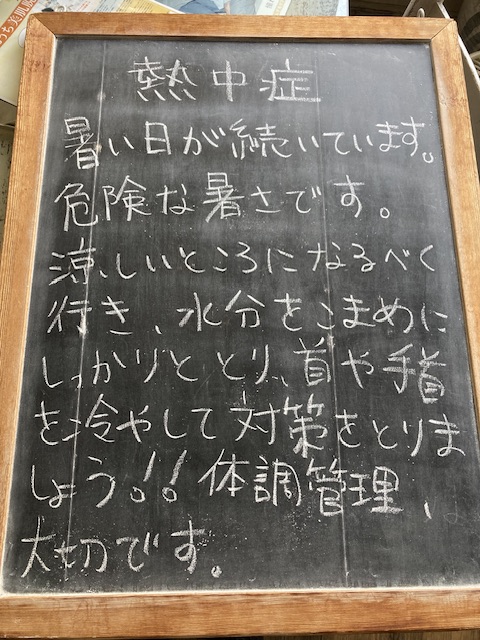 熱中症
暑い日が続いています。
危険な暑さです。
涼しいところになるべく
行き、水分をこまめに
しっかりととり、首や手首
を冷やして対策をとりま
しょう!! 体調管理、
大切です。